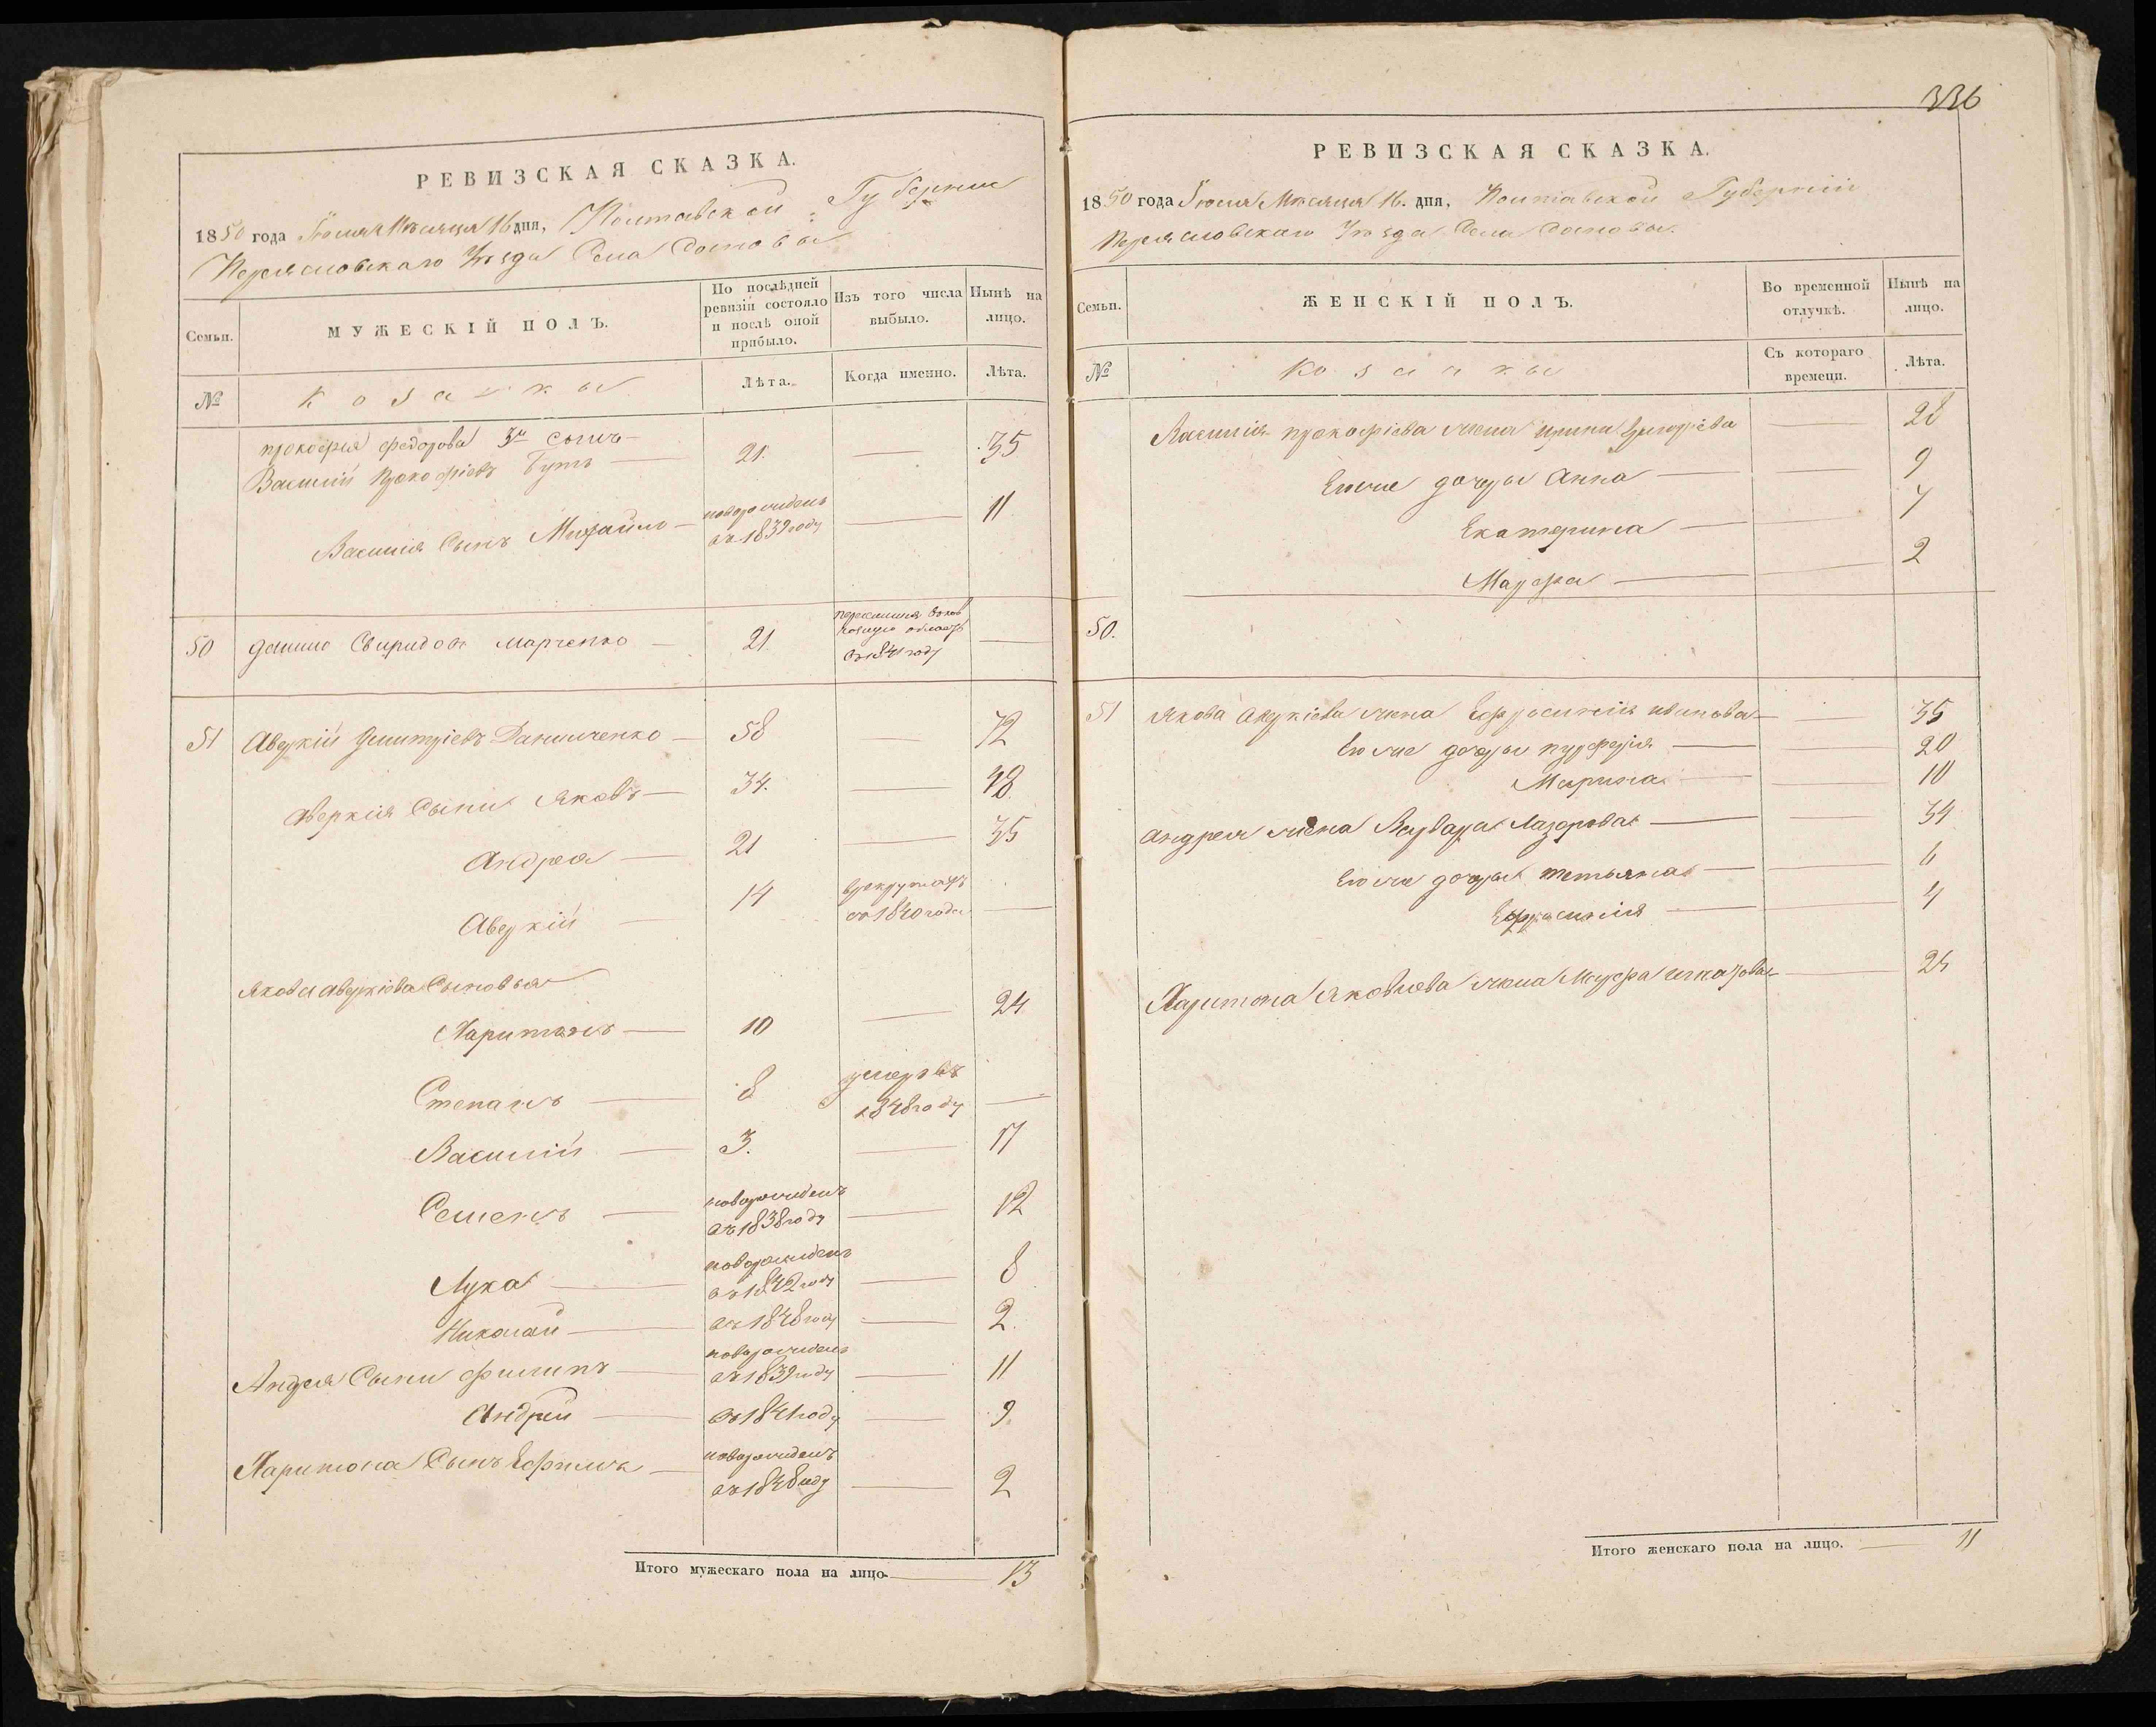 РЕВИЗСКАЯ СКАЗКА.
1850 года Іюля Мѣсяца 16 дня, Полтавской Губерніи
Переясловскаго Уѣзда Села
Семьи.
МУЖЕСКІЙ ПОЛЪ.
По послѣдней ревизіи состояло и послѣ оной прибыло.
Изъ того числа выбыло.
Нынѣ на лицо.
№
Козаки
Лѣта.
Когда именно.
Лѣта.
прокофія федорова 3й сынъ
Василий Прокофіевъ Бутъ — 21. — 35
Василія Сынъ Михайло — новорожденъ — 11
въ 1839 году
50 Свиридовъ Марченко — 21 —
въ 1841 году
51 Аверкій Дмитріевъ Даниленко — 58 — 72
Аверкія Сыни Яковъ — 34. — 48
Андреа — 21 — 35
Аверкій — 14 —
въ 1840 года
Якова Аверкіева Сыновья
Харитонъ — 10 — 24
Степанъ — 8 умеръ въ —
1848 году
Василій — 3. — 17
Семенъ — новорожденъ — 12
въ 1838 году
Лука — новорожденъ — 8
въ 1842 году
Николай — въ 1848 году — 2.
Андрея Сыни Филипъ — новорожденъ — 11
въ 1839 году
Андрей — въ 1841 году — 9.
Харитона Сынъ Ефимъ — новорожденъ — 2
въ 1848 году
Итого мужескаго пола на лицо — 13
336
РЕВИЗСКАЯ СКАЗКА.
1850 года Іюля Мѣсяца 16. дня, Полтавской Губерніи
Переясловскаго Уѣзда Села
Семьи.
ЖЕНСКІЙ ПОЛЪ.
Во временной отлучкѣ.
Нынѣ на лицо.
№
Козачки
Съ котораго времени.
Лѣта.
Василія прокофіева жена ирина Григоріева — 28
Еюже дочеры Анна — 9
Екатерина — 7
Марфа — 2
50.
51 Якова Аверкіева жена Ефросинія иванова — 35
Еюже дочеры — 20
Марина — 10
Андрея жена Варвара Лазорова — 34
Еюже дочеры тетьяна — 6
Ефросинія — 4
Харитона Яковлева жена Марфа — 25
Итого женскаго пола на лицо. — 11